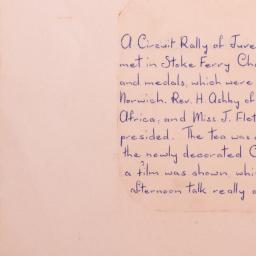 A Circuit Rally of Juve
met in Stoke Ferry Cha
and medals, which were
Norwich. Rev. H. Ashby of
Africa, and Miss J. Flet
presided. The tea was
the newly decorated C
a film was shown whi
afternoon talk really